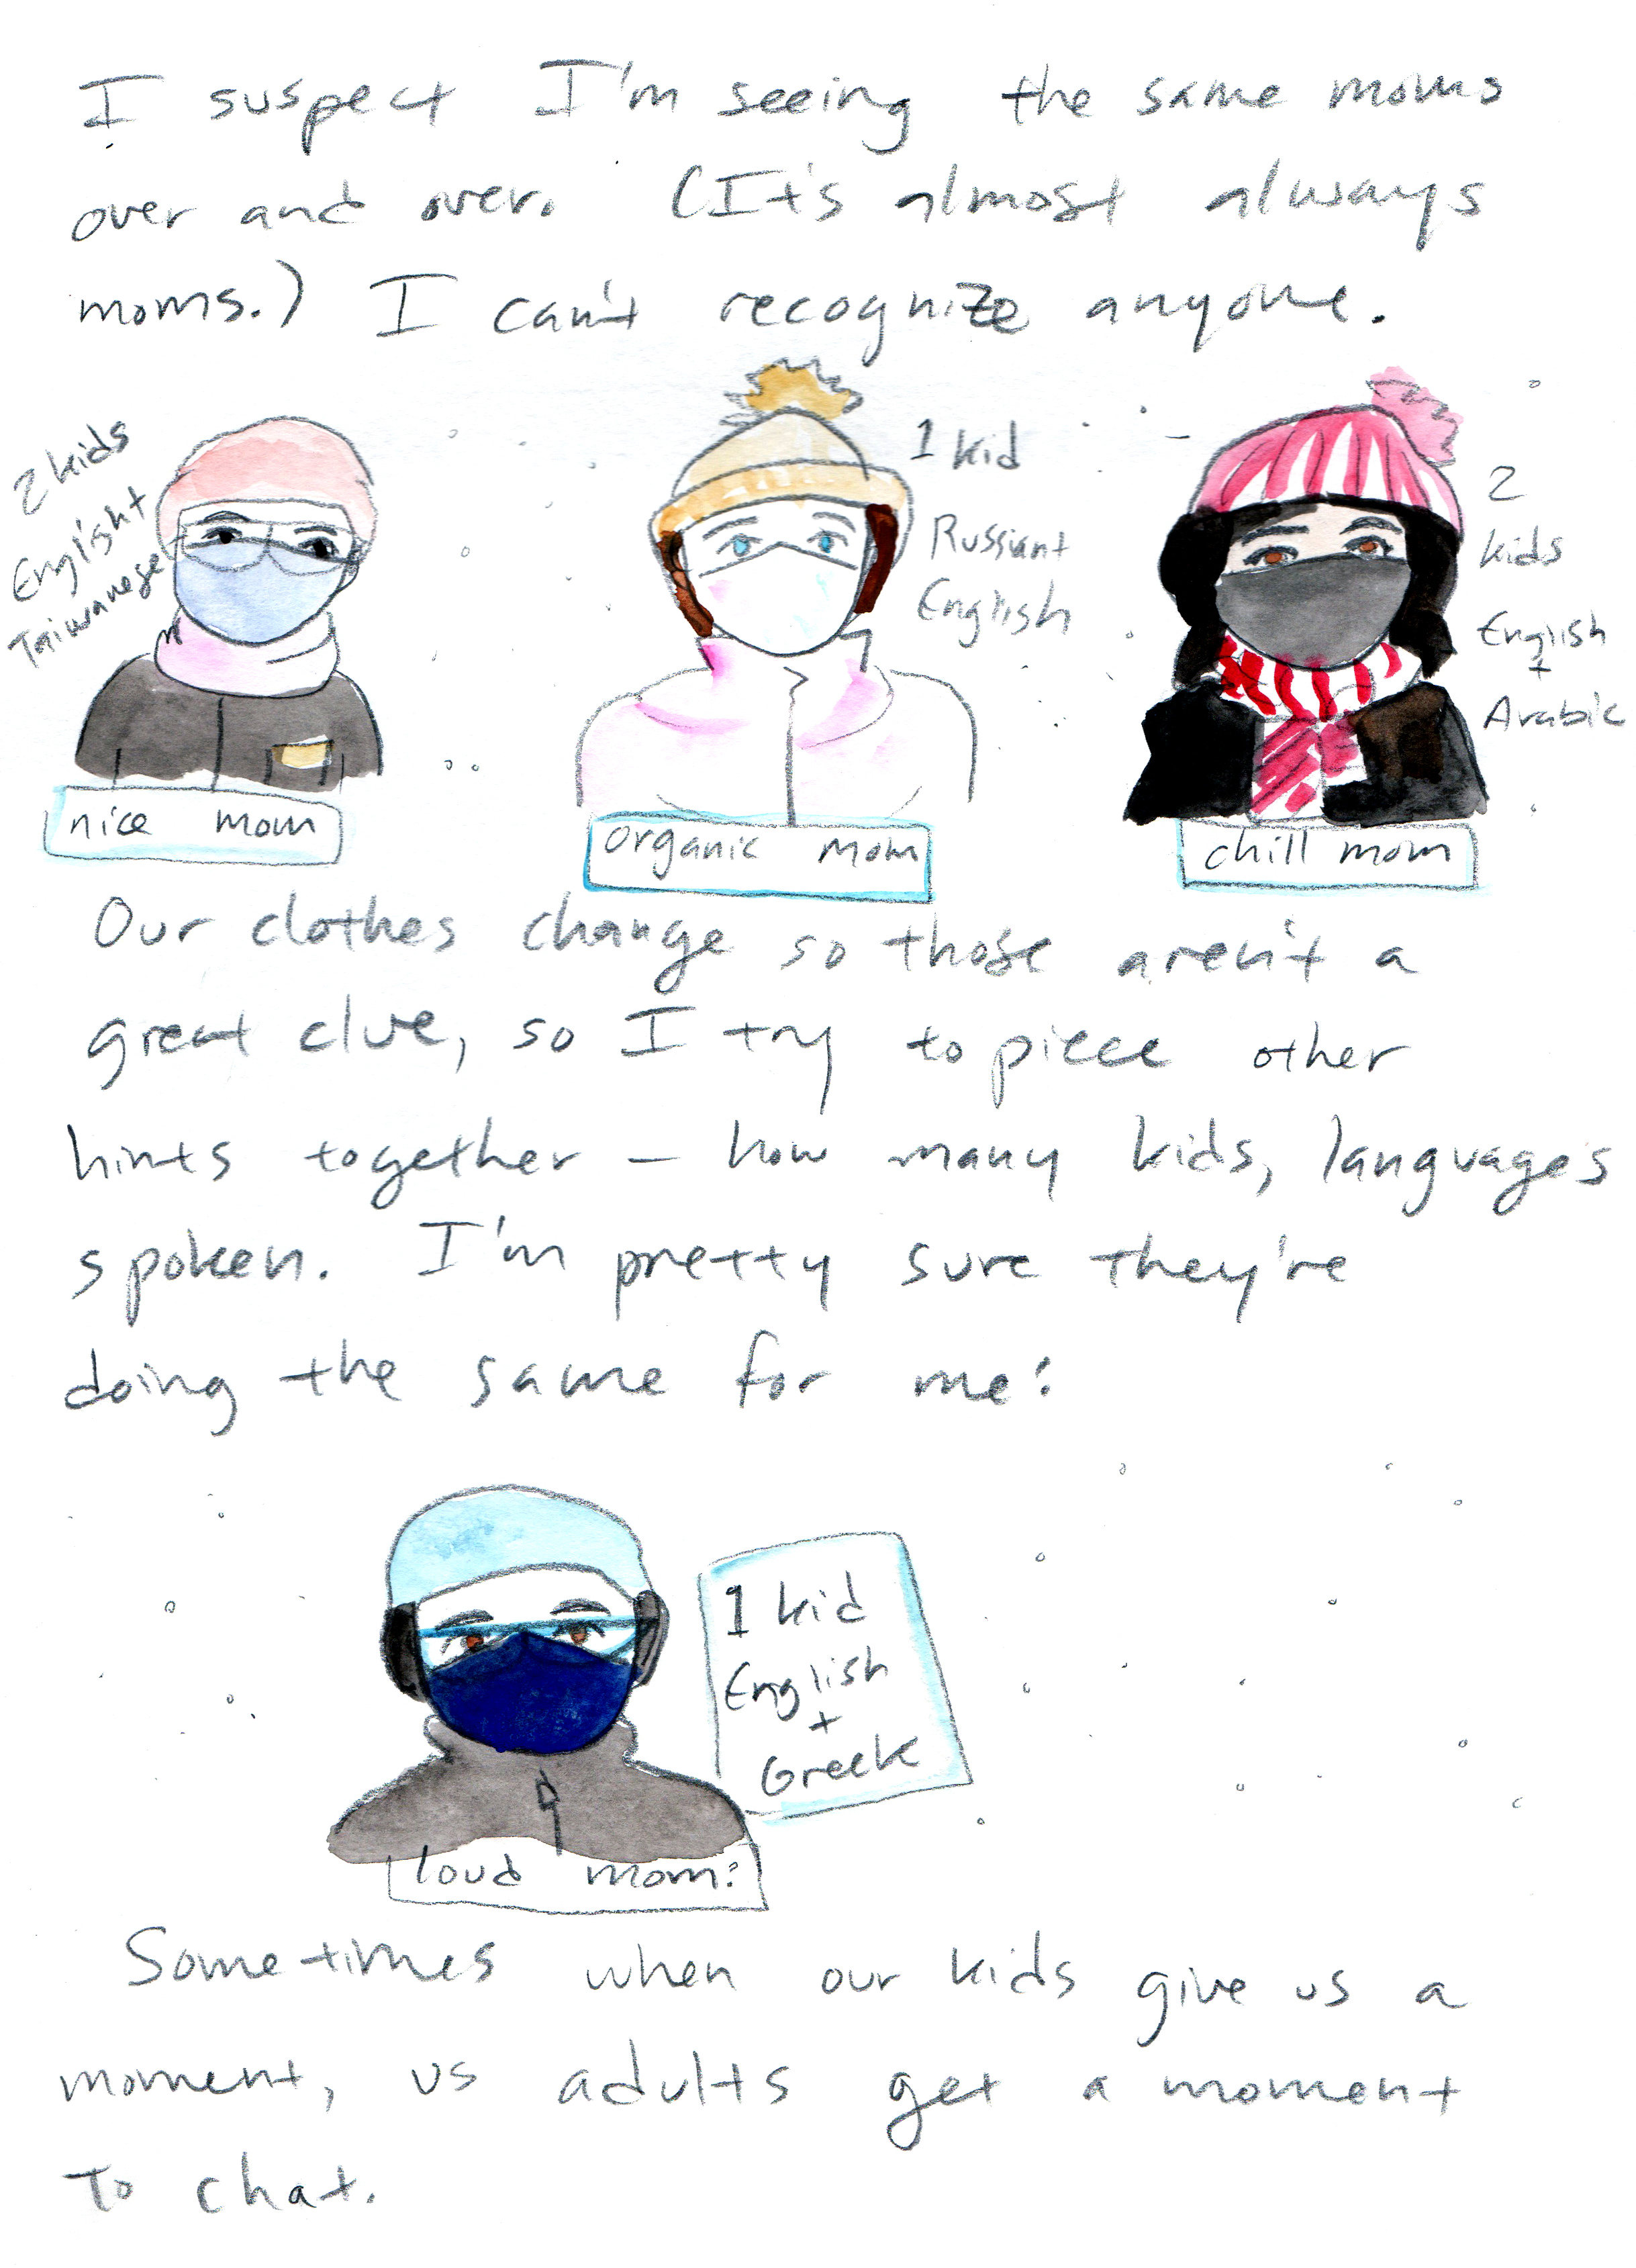 I suspect I'm seeing the same moms
over and over. (It's almost always
moms.) I can't recognize anyone.
2 kids
English +
Taiwanese
nice mom
1 kid
Russian +
English
organic mom
2
kids
English
+
Arabic
chill mom
Our clothes change so those aren't a
great clue, so I try to piece other
hints together - how many kids, languages
spoken. I'm pretty sure they're
doing the same for me:
1 kid
English
+
Greek
loud mom?
Sometimes when our kids give us a
moment, us adults get a moment
to chat.